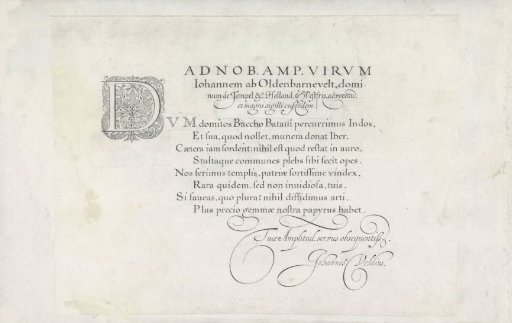 AD NOB. AMP. VIRVM
Iohannem ab Oldenbarnevelt, domi-
num de Tempel &c Holland. & Westfris. advocatū,
et magni sigilli custodem.
DVM domitos Baccho Batavi percurrimus Indos,
Et sua, quod nollet, munera donat Iber.
Cætera iam sordent: nihil est quod restat in auro,
Stultaque communes plebs sibi fecit opes.
Nos ferimus templis, patriæ fortissime vindex,
Rara quidem, sed non inuidiosa, tuis.
Si faueas, quo plura? nihil diffidimus arti.
Plus precio gemmæ nostra papyrus habet.
Tuæ Amplitud. servus obsequentiss.
Johannes Veldius.